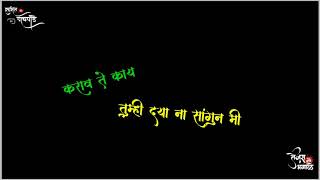 कराव ते काय
तुम्ही दया ना सांगुन मी